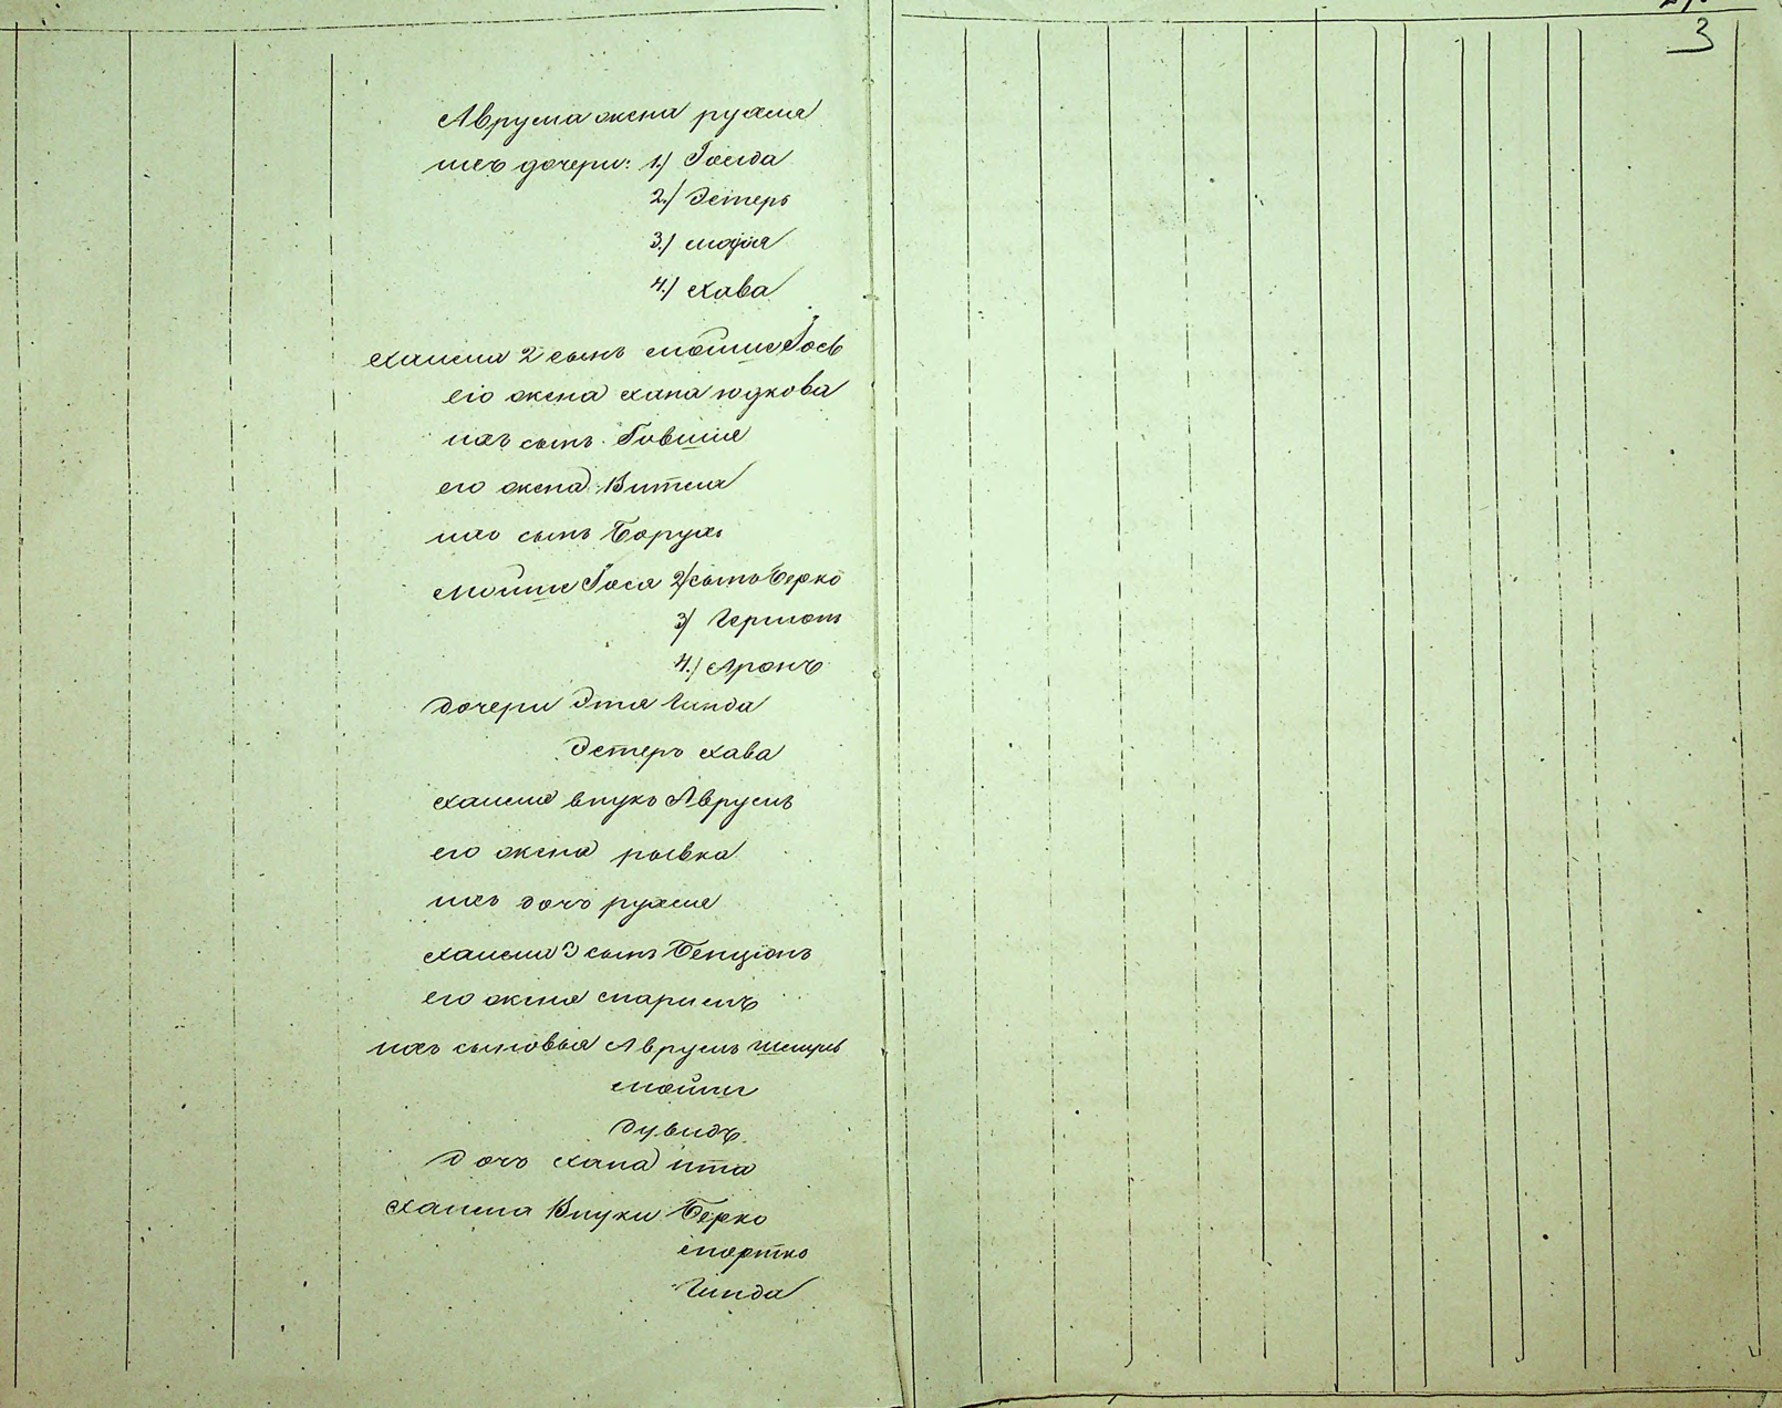 3
Аврума жена рухля
ихъ дочери: 1.) Голда
2.) Эстеръ
3.) марія
4.) Хава
Хаима 2 сынъ мойше Іось
его жена хана юдкова
ихъ сынъ Говшія
его жена Витля
ихъ сынъ Борухъ
мойше Іося 2) сынъ Берко
3) Гершонъ
4.) Аронъ
дочери Этя Гинда
Эстеръ хава
хаима внукъ Аврумъ
его жена рывка
ихъ дочь рухля
хаима 3 сынъ Бенціонъ
его жена маріемъ
ихъ сыновья Аврумъ
мойши
дувидъ
дочь хана ита
хаима Внуки Берко
мортко
Гинда